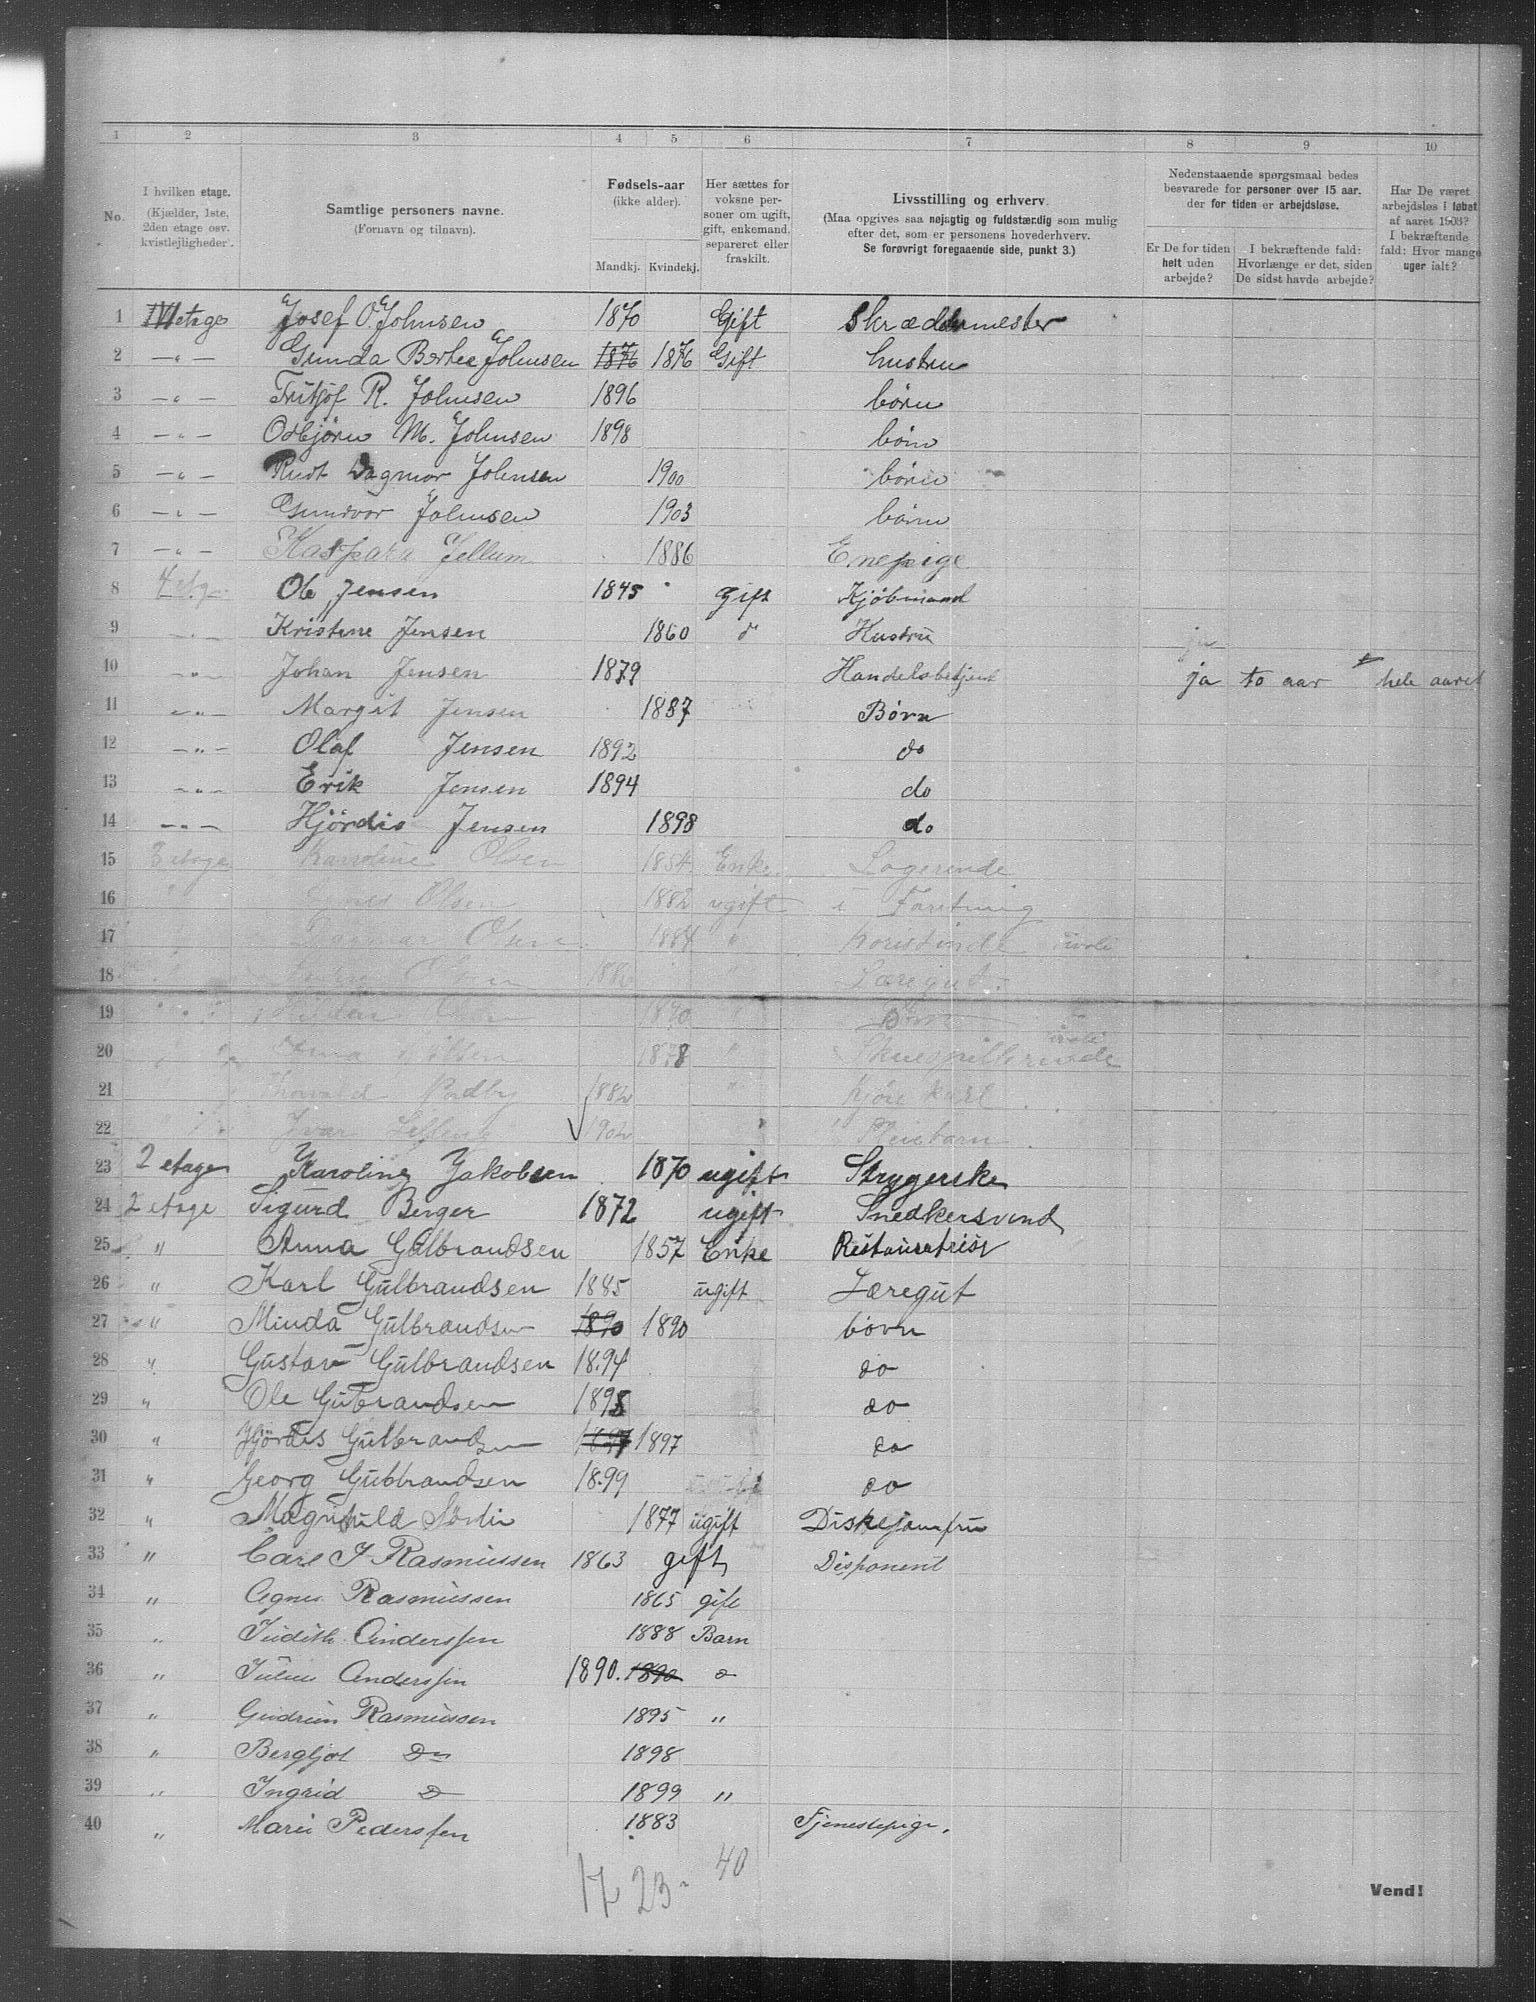 1 2 3 4 5 6 7 8 9 10
No.
I hvilken etage. (Kjælder, 1ste, 2den etage osv. kvistlejligheder).
Samtlige personers navne. (Fornavn og tilnavn).
Fødsels-aar (ikke alder). Mandkj. Kvindekj.
Her sættes for voksne personer om ugift, gift, enkemand, separeret eller fraskilt.
Livsstilling og erhverv. (Maa opgives saa nøjagtig og fuldstændig som mulig efter det, som er personens hovederhverv. Se forøvrigt foregaaende side, punkt 3.)
Nedenstaaende spørgsmaal bedes besvarede for personer over 15 aar, der for tiden er arbejdsløse.
Er De for tiden helt uden arbejde?
I bekræftende fald: Hvorlænge er det, siden De sidst havde arbejde?
Har De været arbejdsløs i løbet af aaret 1903? I bekræftende fald: Hvor mange uger ialt?
1 etage Josef O. Johnsen 1870 Gift Skræddermester
2 —"— Gunda Bertee Johnsen 1876 1876 Gift hustru
3 —"— Fritjof R. Johnsen 1896 børn
4 —"— Osbjørn M. Johnsen 1898 børn
5 —"— Rudt Dagmar Johnsen 1900 børn
6 —"— Gundvor Johnsen 1903 børn
7 —"— Kaspara Jellum 1886 Enepige
8 4 etg. Ole Jensen 1845 gift Kjøbmand
9 —"— Kristine Jensen 1860 d° Hustru ja
10 —"— Johan Jensen 1879 Handelsbetjent ja to aar hele aaret
11 —"— Margit Jensen 1887 Børn
12 —"— Olaf Jensen 1892 do
13 —"— Erik Jensen 1894 do
14 —"— Hjördis Jensen 1898 do
15 etage Karoline Olsen 1854 Enke Logerende
16 " Olsen 1882 ugift i Foretning
17 Dagmar Olsen 1884 " Tivoli
18 Olsen Læregut
19 " Børn
20 Anna 1878 " Skuespillerinde Tivoli
21 Thorvald 1882 " kjøre karl
22 Ivar 1902 Pleiebarn
23 2 etage Karoline Jakobsen 1870 ugift Strygerske
24 2 etage Sigurd Berger 1872 ugift Snedkersvend
25 " Anna Gulbrandsen 1857 Enke Restauratrise
26 " Karl Gulbrandsen 1885 ugift Læregut
27 " Minda Gulbrandsen 1890 1890 børn
28 " Gustav Gulbrandsen 1894 do
29 " Ole Gulbrandsen 1895 do
30 " Hjördis Gulbrandsen 1897 1897 do
31 " Georg Gulbrandsen 1899 do
32 " Magnhild 1877 ugift Diskejomfru
33 " Carl J Rasmussen 1863 gift Disponent
34 " Agnes Rasmussen 1865 gift
35 " Judith Anderssen 1888 Barn
36 " Julius Anderssen 1890. 1890 d°
37 " Gudrun Rasmussen 1895 "
38 " Bergljot Do 1898
39 " Ingrid D° 1899 "
40 " Marie Pederssen 1883 Tjenestepige.
17 23 40
Vend!